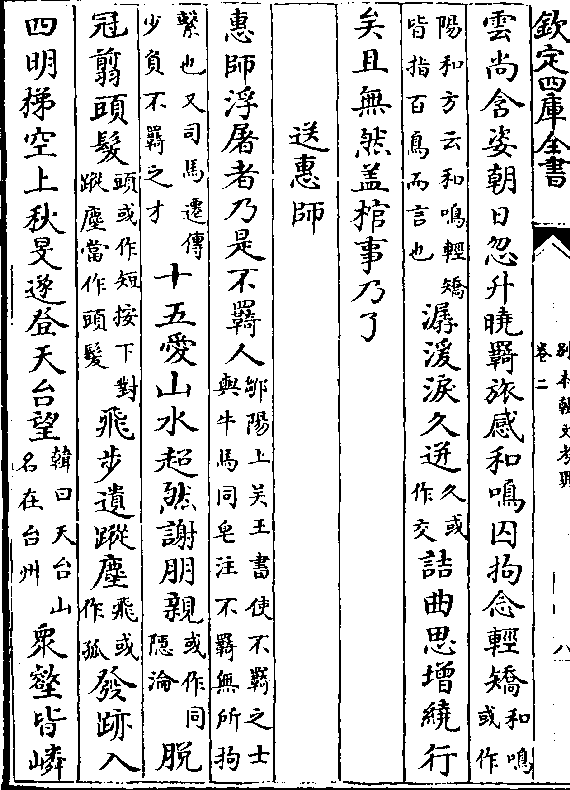 欽定四庫全書
別本韓文考異
卷二
八
雲尚含姿朝日忽升曉羈旅感和鳴囚拘念輕矯和鳴或作
陽和方云和鳴輕矯皆指百鳥而言也潺湲淚久迸久或作交詰曲思增繞行
矣且無然盖棺事乃了
送惠師
惠師浮屠者乃是不羈人鄒陽上吴王書使不羈之士與牛馬同皂注不羈無所拘
繫也又司馬遷傳少負不羈之才十五愛山水超然謝朋親或作同隱淪脱
冠翦頭髮頭或作短按下對蹤塵當作頭髮飛步遺蹤塵飛或作孤發跡入
四明梯空上秋旻遂登天台望韓曰天台山名在台州衆壑皆嶙